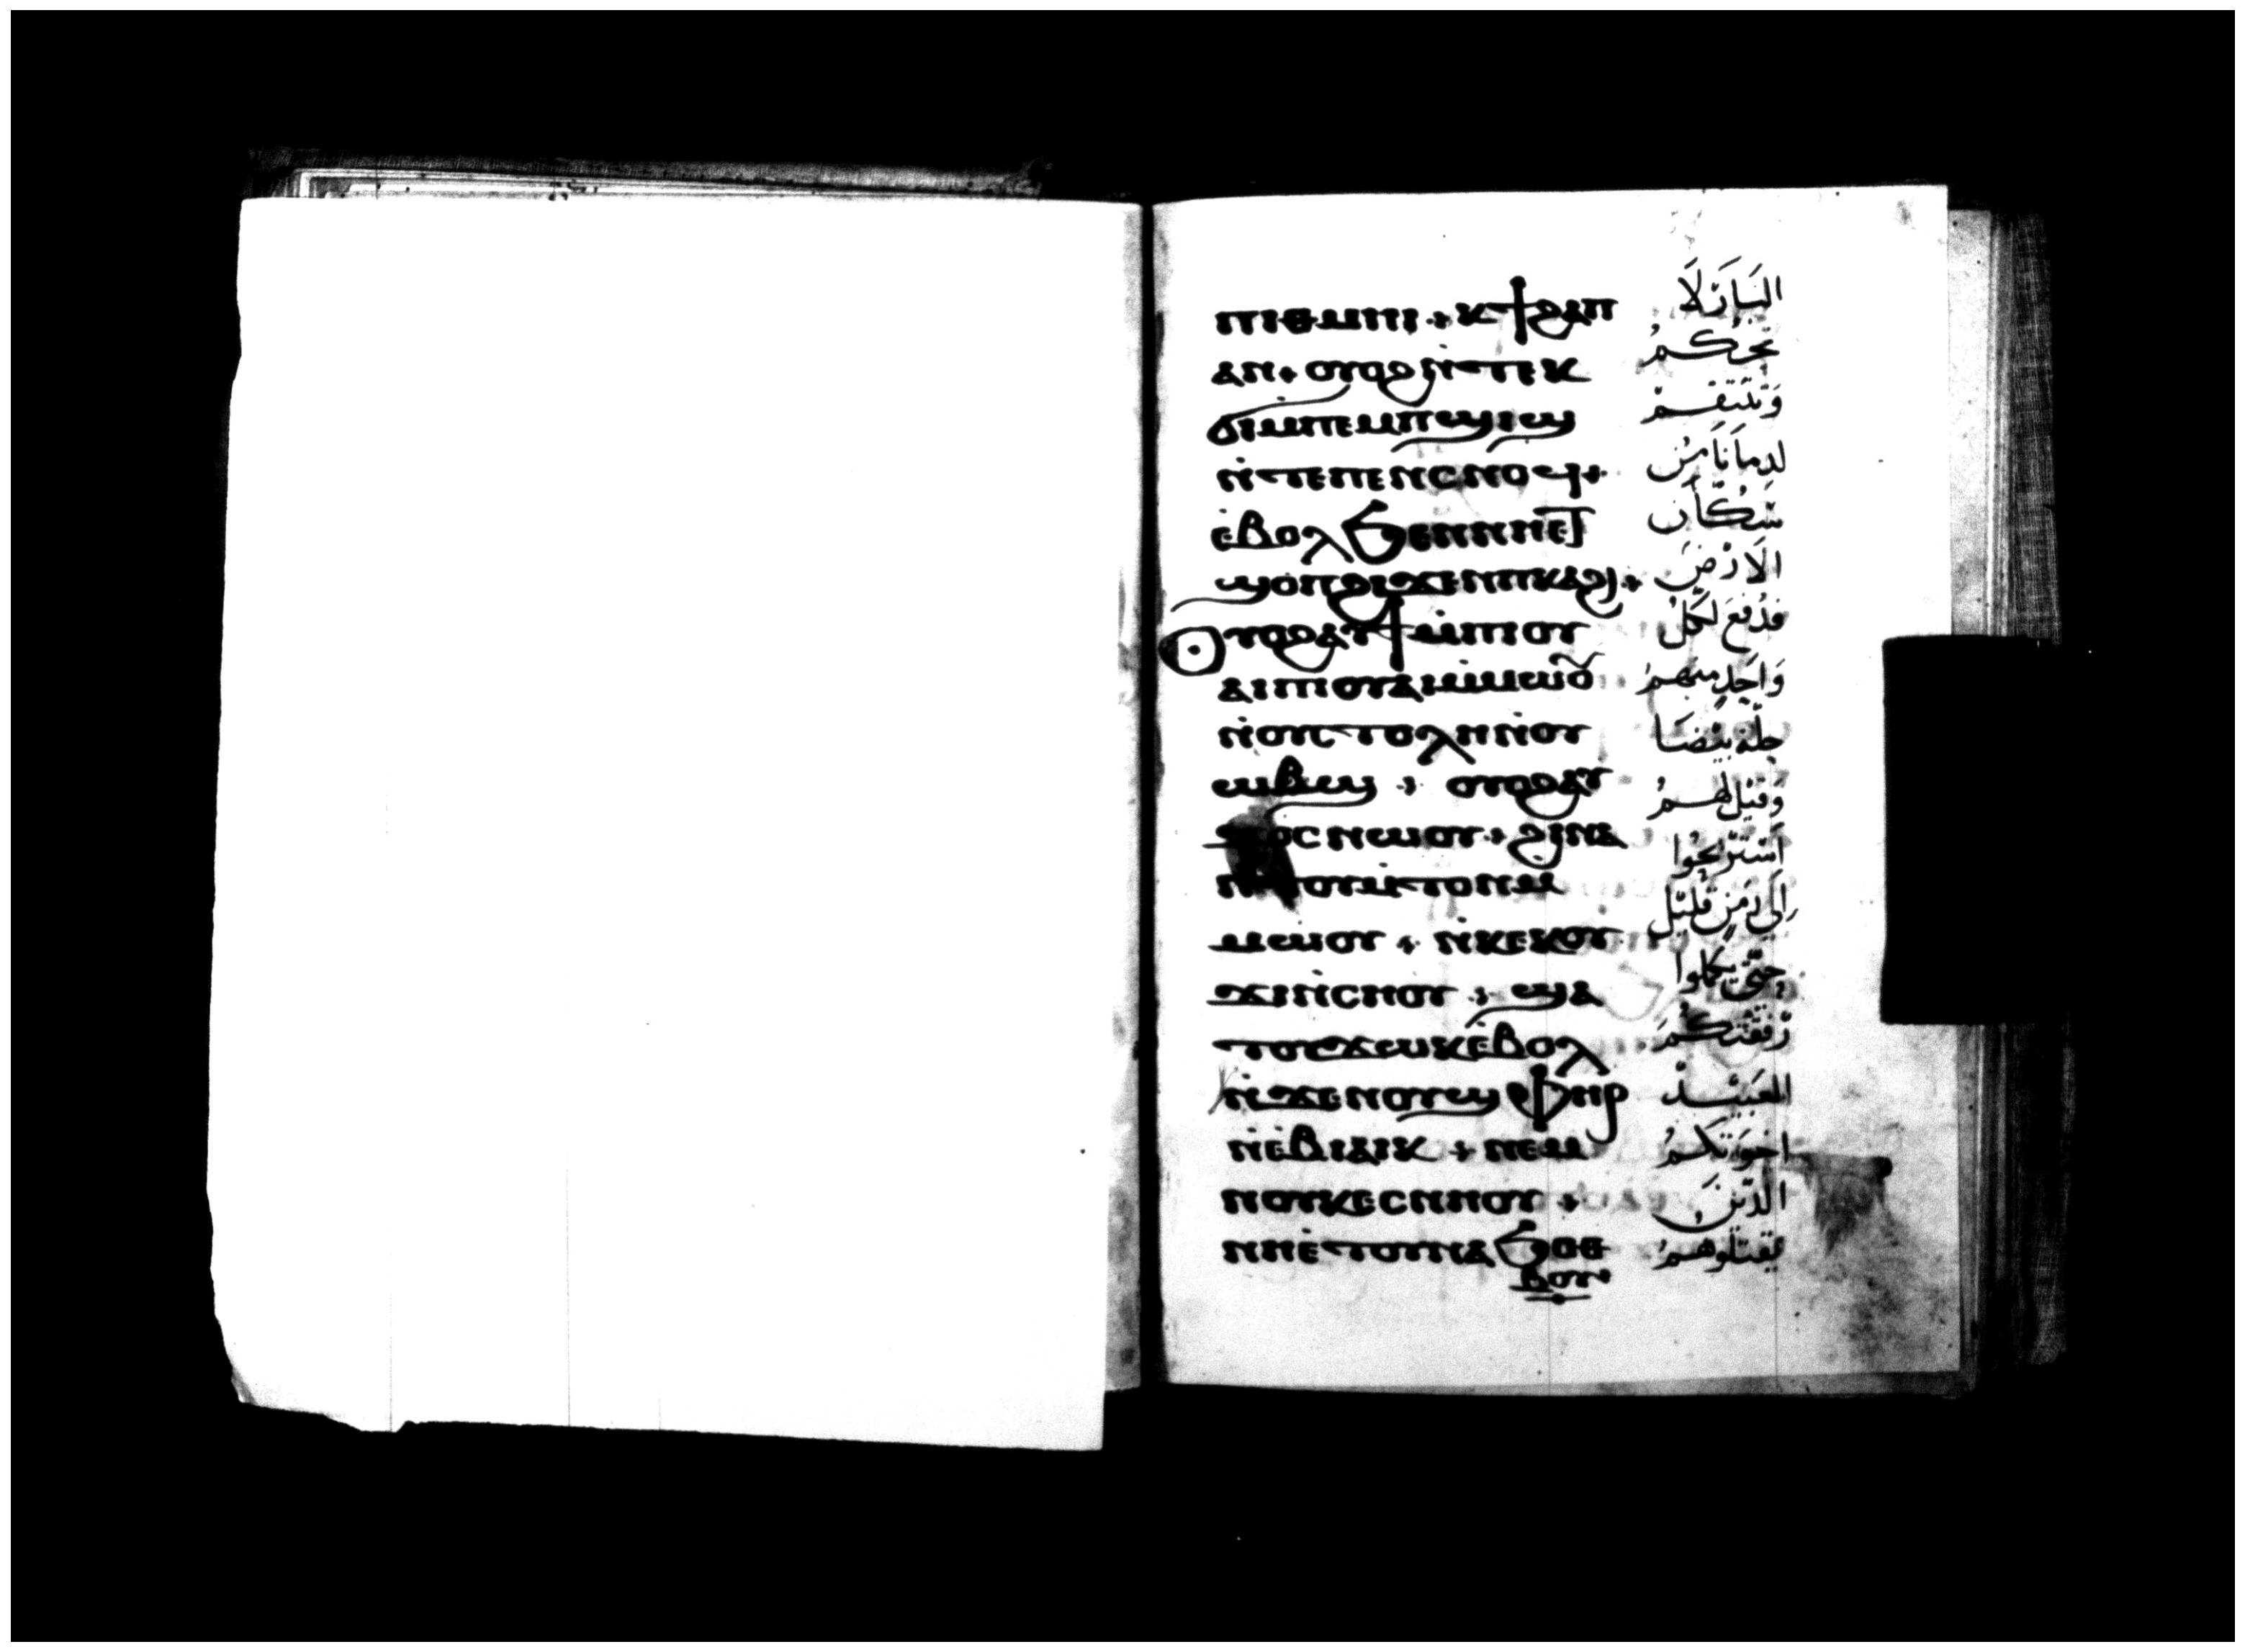 ⲡⲓⲑⲙⲏⲓ ⲕϯϩⲁⲡ
ⲁⲛ ⲟⲩⲟϩ ⲛ̇ⲧⲉⲕ
ϭⲓⲙⲡⲉⲙⲡϣⲓϣ
ⲛ̇ⲧⲉⲡⲉⲛⲥⲛⲟϥ
ⲉ̇ⲃⲟⲗϧⲉⲛⲛⲏⲉⲧ
ϣⲟⲡϩⲓϫⲉⲛⲡⲕⲁϩⲓ
ⲟⲩⲟϩⲁⲩϯⲙ̇ⲡⲓⲟⲩ
ⲁⲓⲡⲓⲟⲩⲁⲓⲙ̇ⲙⲱⲟⲩ
ⲛ̇ⲟⲩⲥⲧⲟⲗⲏⲛ̇ⲟⲩ
ⲱⲃϣ ⲟⲩⲟϩⲁⲩ
ϫⲟⲥ ⲛⲱⲟⲩ ϩⲓⲛⲁ
ⲛ̇ⲧⲟⲩⲙ̇ⲧⲟⲛⲙ
ⲙⲱⲟⲩ ⲛ̇ⲕⲉⲕⲟⲩ
ϫⲓⲛ̇ⲥⲏⲟⲩ ϣⲁ
ⲧⲟⲩϫⲱⲕⲉ̇ⲃⲟⲗ
ⲛ̇ϫⲉⲛⲟⲩϣⲫⲏⲣ
ⲛ̇ⲉ̇ⲃⲓⲁⲓⲕ ⲛⲉⲙ
ⲛⲟⲩⲕⲉⲥⲛⲏⲟⲩ
ⲛⲏⲉ̇ⲧⲟⲩⲛⲁϧⲟⲑ
ⲃⲟⲩ
البَارَ لَا
تحكُمُ
وَتَنتَقِمْ
لدِمآنَا مِنْ
سُكَّان
الَارْضِ
فدُفعَ لكلُ
وَاحِدٍ مِنهمُ
حِلّة بَيْضَا
وَقيْل لَهمُ
اسْتَرْيحُوا
اِلَي زمَنٍ قَليْل
حتّى يكملوا
رُفقتكمُ
العَبيْدْ
اخوَتكمُ
الذينَ
يقتلوهمُ